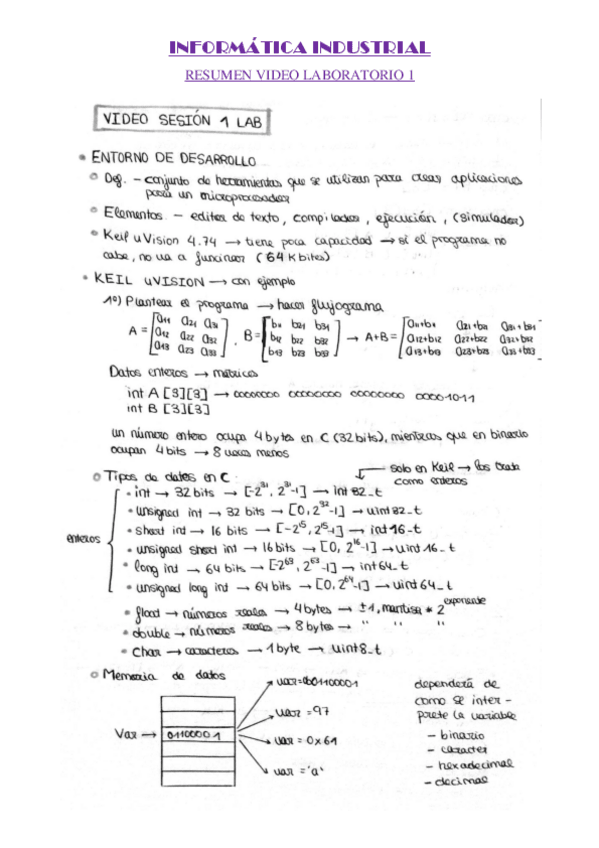 INFORMÁTICA INDUSTRIAL
RESUMEN VIDEO LABORATORIO 1
VIDEO SESIÓN 1 LAB
• ENTORNO DE DESARROLLO
○ Def. - conjunto de herramientas que se utilizan para crear aplicaciones
para un microprocesador
○ Elementos. - editor de texto, compilador, ejecución, (simulador)
○ Keil uVision 4.74 → tiene poca capacidad → si el programa no
cabe, no va a funcionar (64 Kbites)
• KEIL uVISION → con ejemplo
1º) Plantear el programa → hacer flujograma
A = [a11 a21 a31 , B = [b11 b21 b31 → A+B = [a11+b11 a21+b21 a31+b31
a12 a22 a32 b12 b22 b32 a12+b12 a22+b22 a32+b32
a13 a23 a33] b13 b23 b33] a13+b13 a23+b23 a33+b33]
Datos enteros → matrices
int A [3][3] → 00000000 00000000 00000000 00001011
int B [3][3]
un número entero ocupa 4 bytes en C (32 bits), mientras que en binario
ocupan 4 bits → 8 veces menos
○ Tipos de datos en C
solo en Keil → los trata
como enteros
enteros
• int → 32 bits → [-2^31, 2^31-1] → int32_t
• unsigned int → 32 bits → [0, 2^32-1] → uint32_t
• short int → 16 bits → [-2^15, 2^15-1] → int16_t
• unsigned short int → 16 bits → [0, 2^16-1] → uint16_t
• long int → 64 bits → [-2^63, 2^63-1] → int64_t
• unsigned long int → 64 bits → [0, 2^64-1] → uint64_t
• float → números reales → 4 bytes → ±1, mantisa * 2^exponente
• double → números reales → 8 bytes → " " "
• char → caracteres → 1 byte → uint8_t
○ Memoria de datos
Var → 01100001
var=0b01100001
var = 97
var = 0x61
var = 'a'
dependerá de
como se inter-
prete la variable
- binario
- caracter
- hexadecimal
- decimal